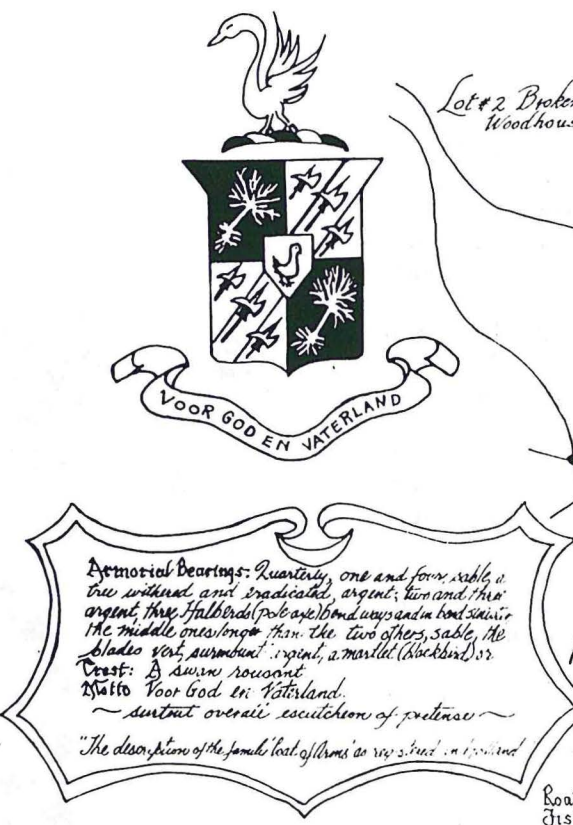 Lot #2 Broken
Woodhous
VOOR GOD EN VATERLAND
Armorial Bearings: Quarterly, one and four, sable, a
tree withered and eradicated, argent; two and three
argent, three Halberds (pole axe) bend ways and in bend sinister
the middle ones longer than the two others, sable, the
blades vert, surmount argent, a martlet (blackbird) or
Crest: A swan rousant
Motto Voor God en Vaterland.
~ surtout overall escutcheon of pretense ~
"The description of the family Coat of Arms as registered in Holland
Roa
Fis